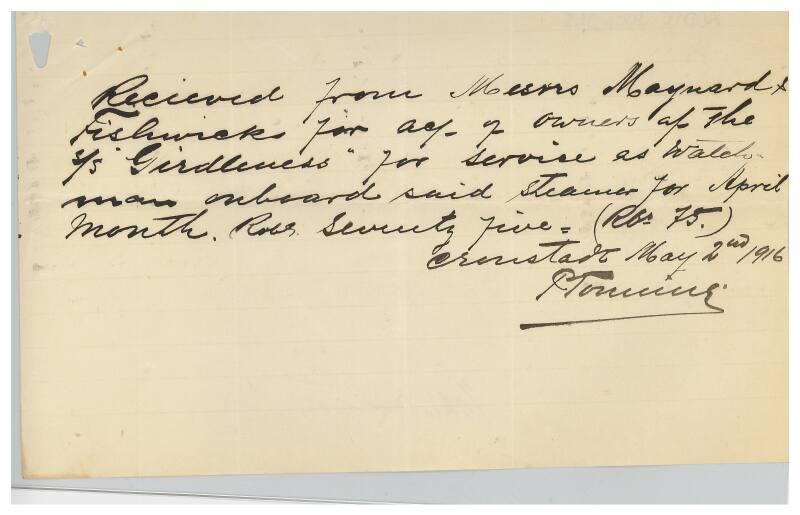 Recieved from Messrs Maynard &
Fishwicks for acf. of owners of the
s/s "Girdleness" for service as Watch-
man onboard said steamer for April
Month. Robs. Seventy five = (Rbs 75.)
Cronstadt May 2nd 1916